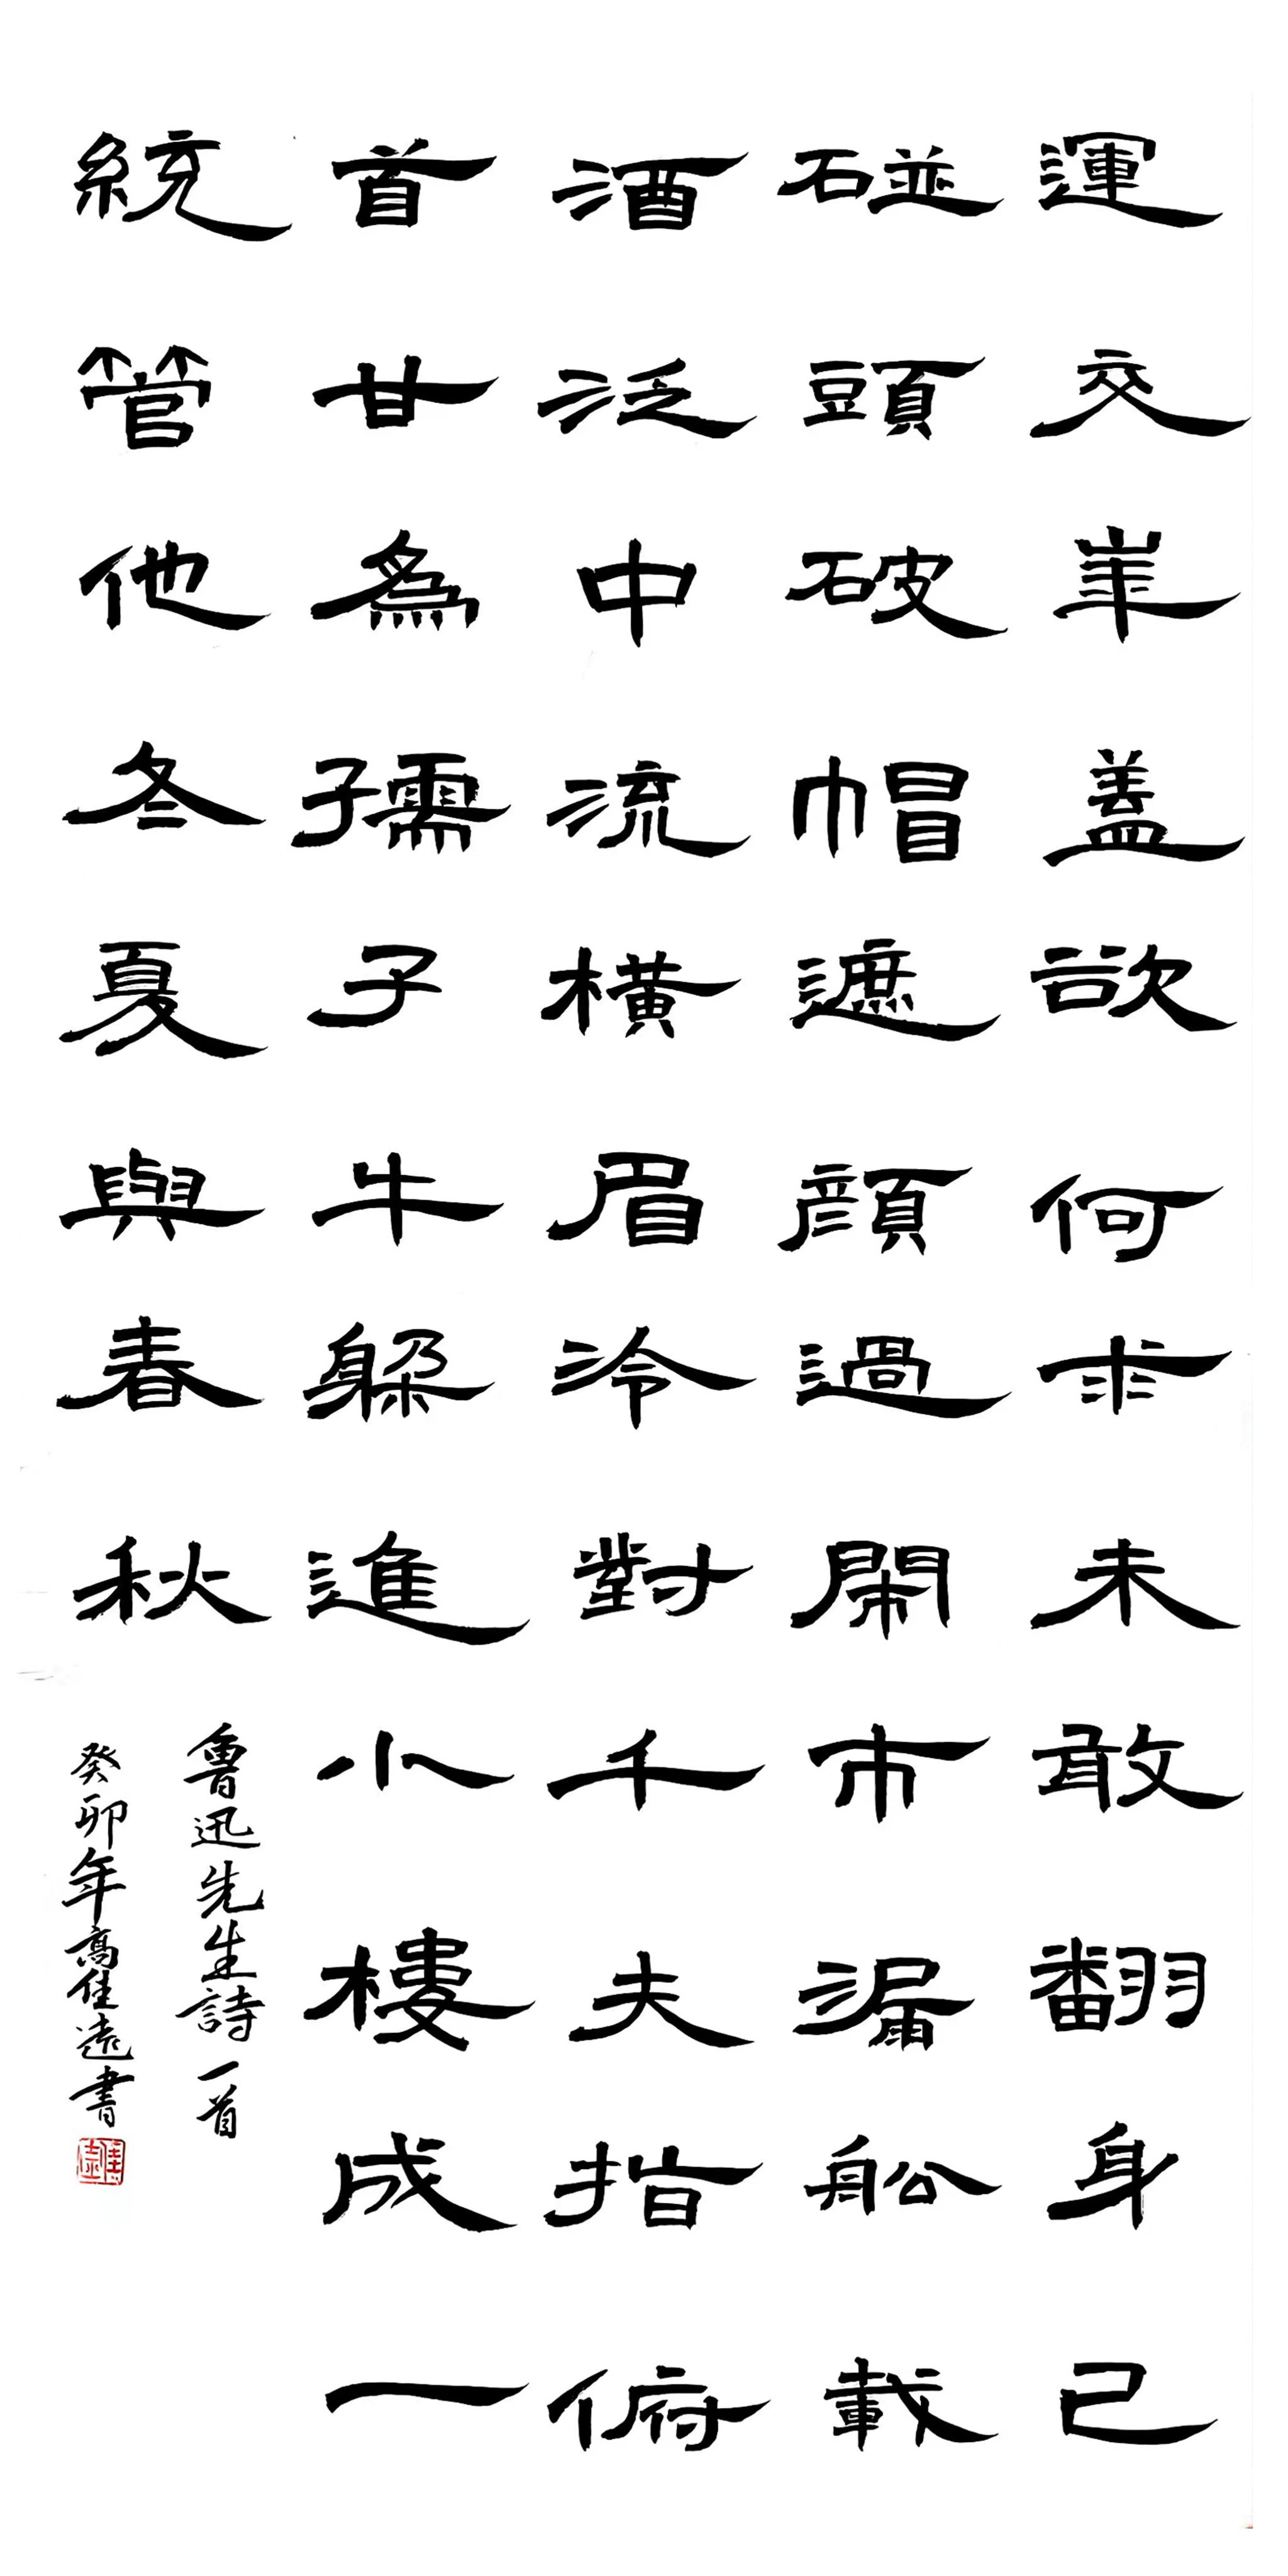 運交華蓋欲何求未敢翻身已
碰頭破帽遮顔過鬧市漏舩載
酒泛中流橫眉冷對千夫指俯
首甘為孺子牛躲進小樓成一
統管他冬夏與春秋
魯迅先生詩一首
癸卯年高佳遠書
佳遠